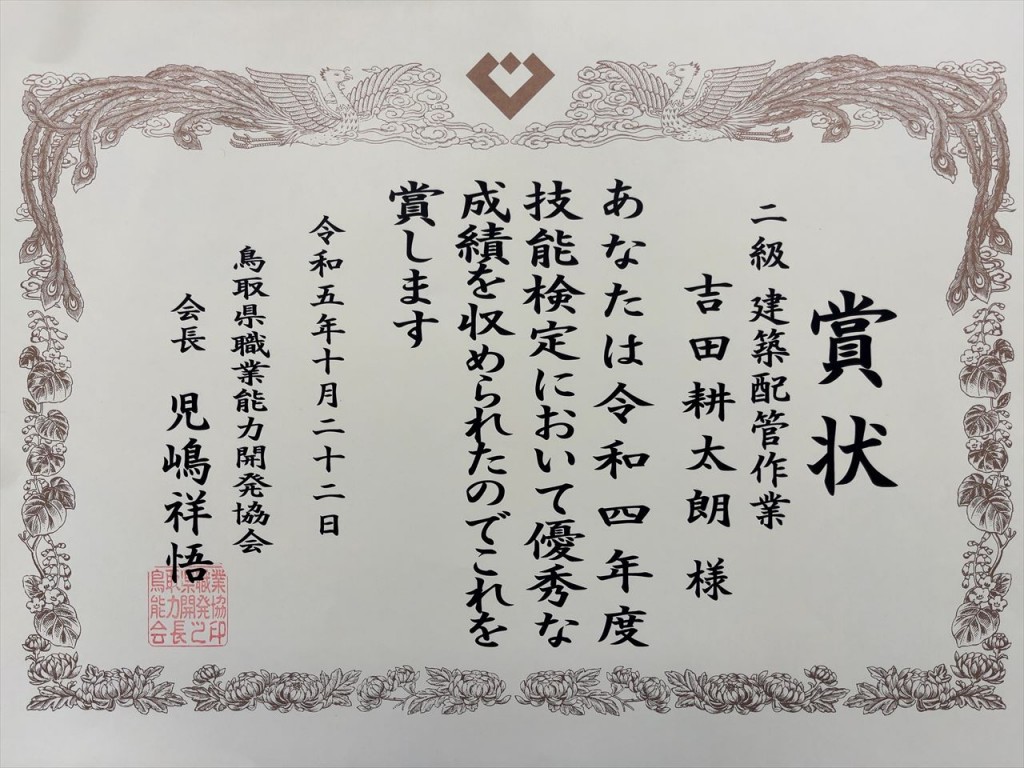 賞状
二級 建築配管作業
吉田耕太朗 様
あなたは令和四年度
技能検定において優秀な
成績を収められたのでこれを
賞します
令和五年十月二十二日
鳥取県職業能力開発協会
会長 児嶋祥悟
鳥取県職業
能力開発協
会長之印